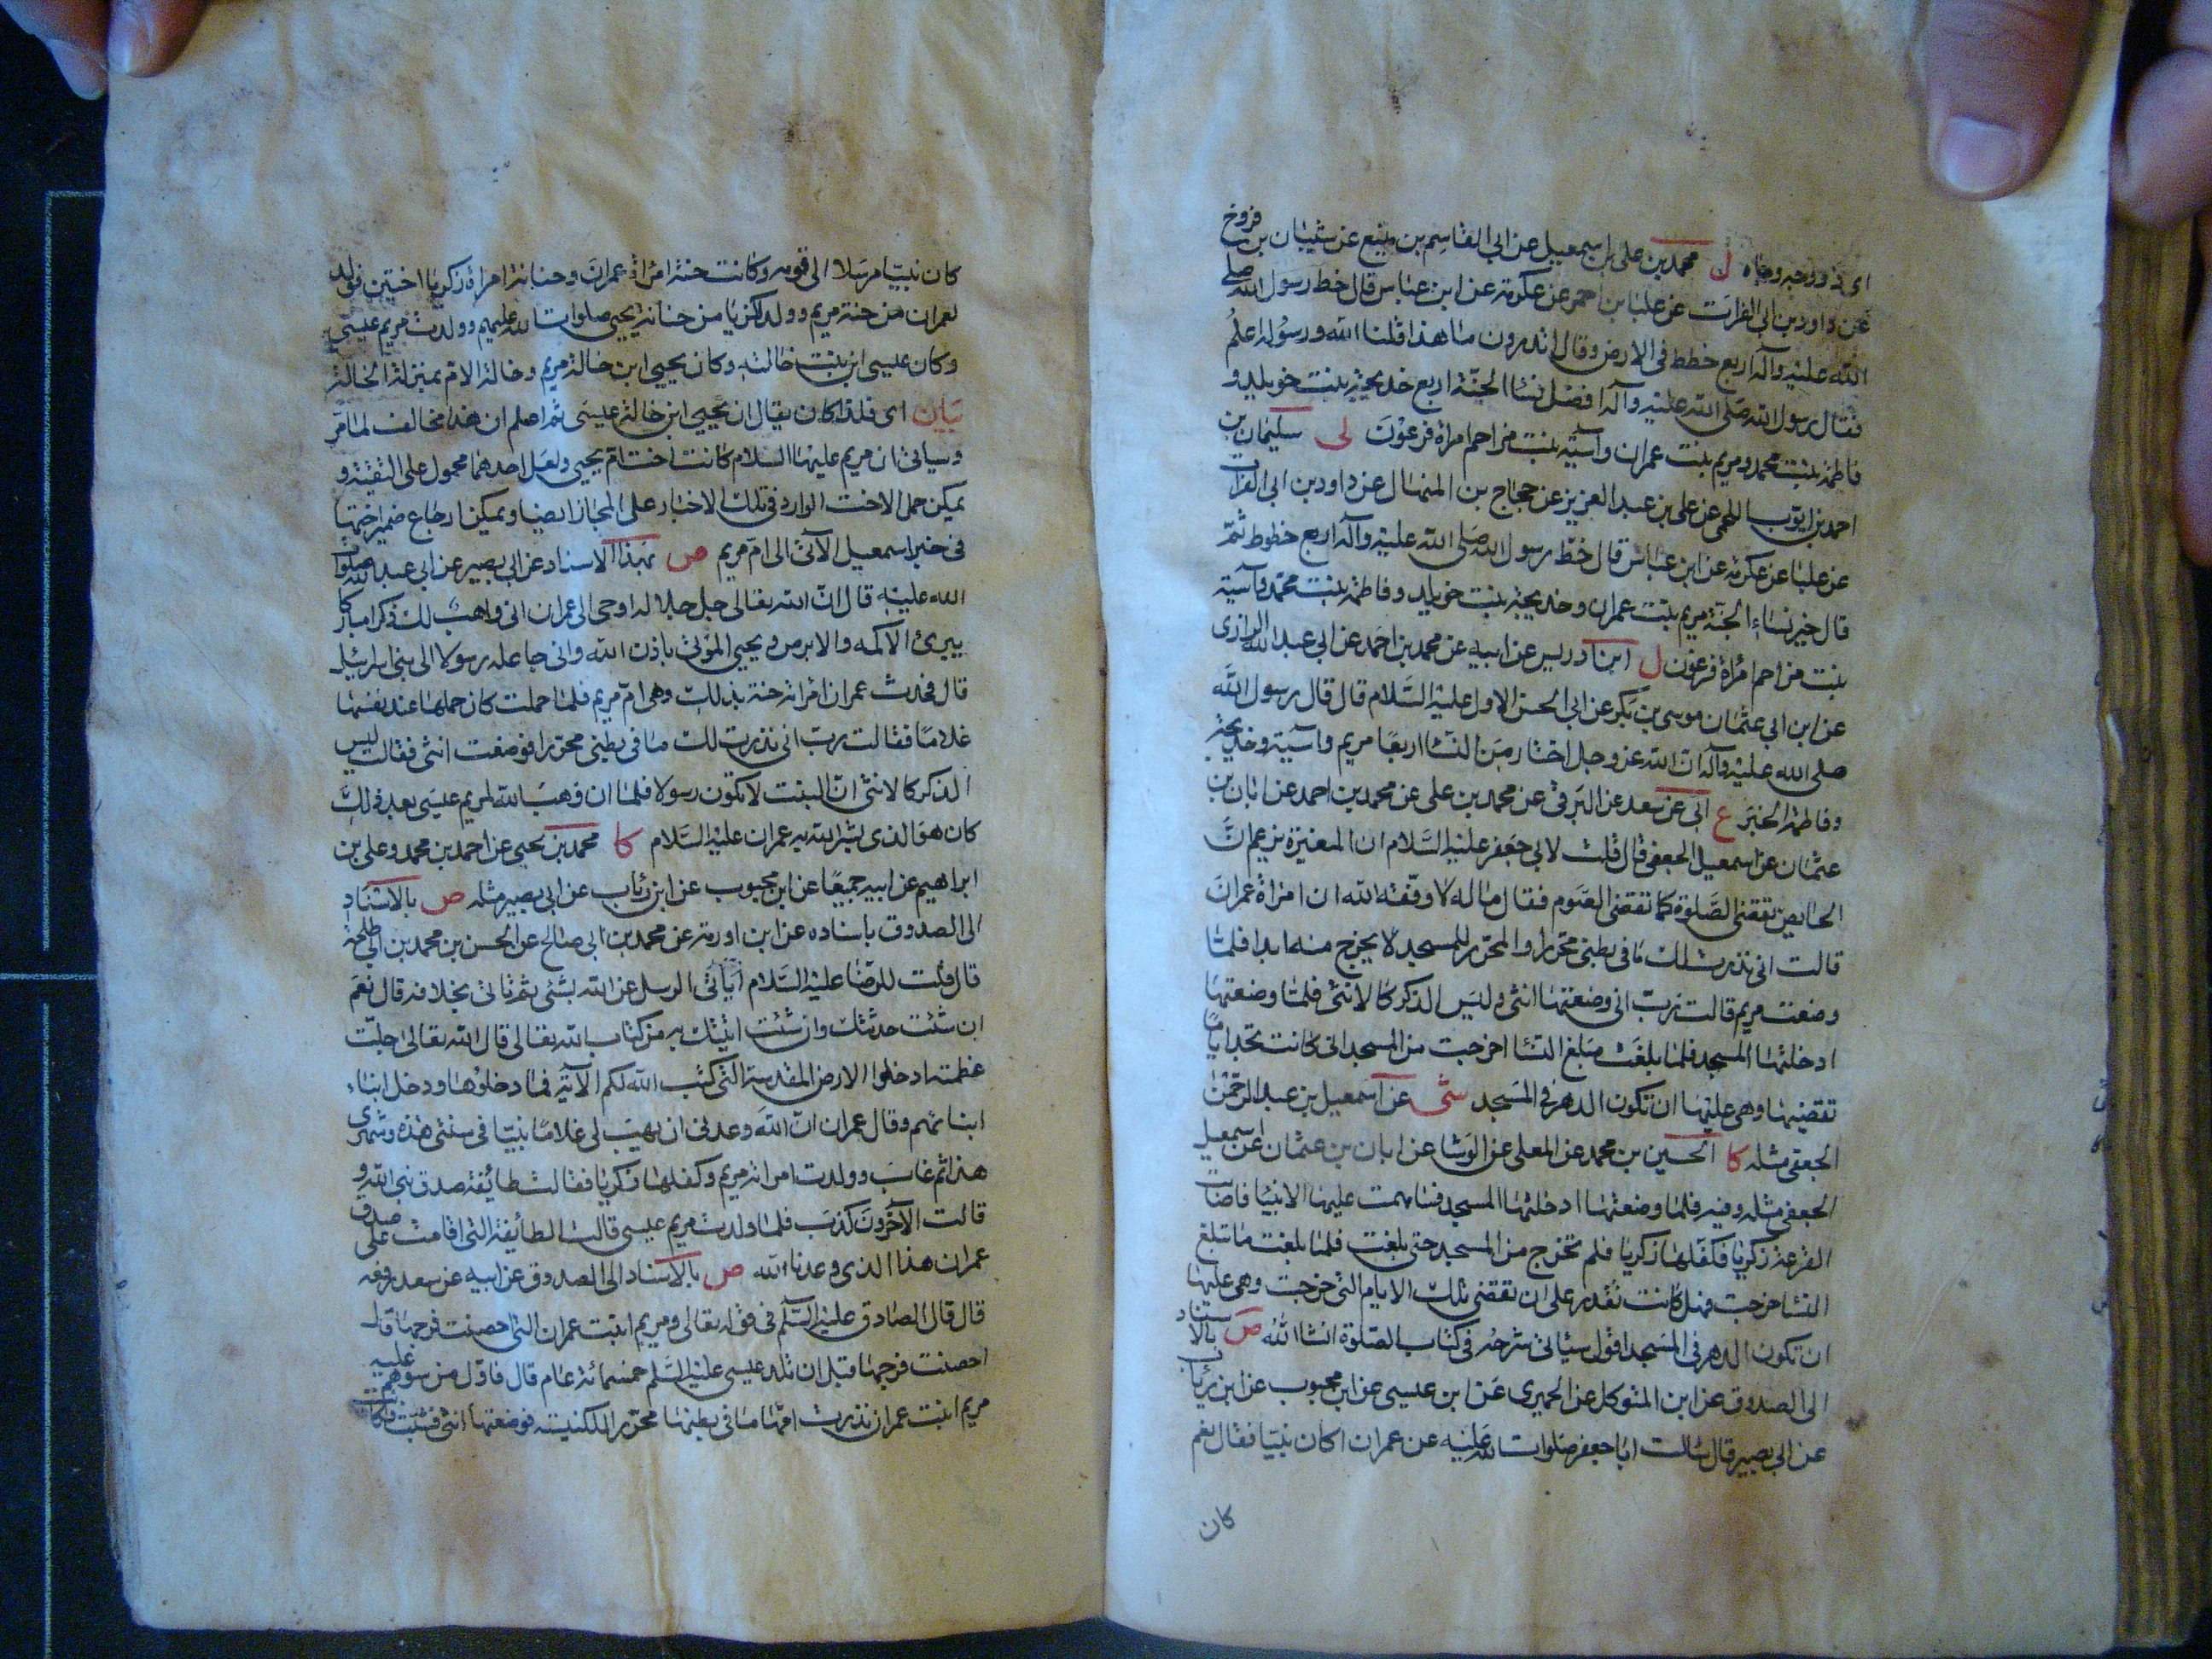 اى ذو وجه وجاه ل محمد بن على بن اسمعيل عن ابى القاسم بن منيع عن شيبان بن فروخ
عن داود بن ابى الفرات عن علبا بن احمر عن عكرمة عن ابن عباس قال خط رسول الله صلى
الله عليه وآله اربع خطط فى الارض وقال اتدرون ما هذا قلنا الله ورسوله اعلم
فقال رسول الله صلى الله عليه وآله افضل نسا الجنة اربع خديجة بنت خويلد و
فاطمة بنت محمد ومريم بنت عمران وآسية بنت مزاحم امراة فرعون لى سليمان بن
احمد بن ايوب اللخمى عن على بن عبد العزيز عن حجاج بن المنهال عن داود بن ابى الفرات
عن علبا عن عكرمة عن ابن عباس قال خط رسول الله صلى الله عليه وآله اربع خطوط ثم
قال خير نساء الجنة مريم بنت عمران وخديجة بنت خويلد وفاطمة بنت محمد وآسية
بنت مزاحم امرأة فرعون ل ابن ادريس عن ابيه عن محمد بن احمد عن ابى عبد الله الرازى
عن ابن ابى عثمان موسى بن بكر عن ابى الحسن الاول عليه السلام قال قال رسول الله
صلى الله عليه وآله ان الله عز وجل اختار من النسا اربعا مريم وآسية وخديجة
وفاطمة الخبر ع ابى عن سعد عن البرقى عن محمد بن على عن محمد بن احمد عن ابان بن
عثمان عن اسمعيل الجعفى قال قلت لابى جعفر عليه السلام ان المغيرة يزعم ان
الحايض تقضى الصلوة كما تقضى الصوم فقال ما له لا وفقه الله ان امراة عمران
قالت انى نذرت لك ما فى بطنى محررا والمحرر للمسجد لا يخرج منه ابدا فلما
وضعت مريم قالت رب انى وضعتها انثى وليس الذكر كالانثى فلما وضعتها
ادخلتها المسجد فلما بلغت مبلغ النسا اخرجت من المسجد انى كانت تجد اياما
تقضيها وهى عليها ان تكون الدهر فى المسجد شى عن اسمعيل بن عبد الرحمن
الجعفى مثله كا الحسين بن محمد عن المعلى عن الوشا عن ابان بن عثمان عن اسمعيل
الجعفى مثله وفيه فلما وضعتها ادخلتها المسجد فساهمت عليها الانبيا فاصابت
القرعة زكريا فكفلها زكريا فلم تخرج من المسجد حتى بلغت فلما بلغت ما تبلغ
النسا خرجت فهل كانت تقدر على ان تقضى تلك الايام التى خرجت وهى عليها
ان تكون الدهر فى المسجد اقول سيأتى شرحه فى كتاب الصلوة انشا الله ص بالاسناد
الى الصدوق عن ابن المتوكل عن الحميرى عن ابن عيسى عن ابن محبوب عن ابن رئاب
عن ابى بصير قال سالت ابا جعفر صلوات الله عليه عن عمران اكان نبيا فقال نعم
كان
كان نبيا مرسلا الى قومه وكانت حنة امراة عمران وحنانة امراة زكريا اختين فولد
لعمران من حنة مريم وولد لزكريا من حنانة يحيى صلوات الله عليهم وولدت مريم عيسى
وكان عيسى ابن بنت خالته وكان يحيى ابن خالة مريم وخالة الام بمنزلة الخالة
بيان اى فلذا كان يقال ان يحيى ابن خالة عيسى ثم اعلم ان هذا مخالف لما مر
وسياتى ان مريم عليها السلام كانت اخت ام يحيى ولعل احدهما محمول على التقية و
يمكن حمل الاخت الوارد فى تلك الاخبار على المجاز ايضا ويمكن ارجاع ضمير اختها
فى خبر اسمعيل الآتى الى ام مريم ص بهذا الاسناد عن ابى بصير عن ابى عبد الله صلوات
الله عليه قال ان الله تعالى جل جلاله اوحى الى عمران انى واهب لك ذكرا مباركا
يبرئ الاكمه والابرص ويحيى الموتى باذن الله وانى جاعله رسولا الى بنى اسرائيل
قال فحدث عمران امراته حنة بذلك وهى ام مريم فلما حملت كان حملها عند نفسها
غلاما فقالت رب انى نذرت لك ما فى بطنى محررا فوضعت انثى فقالت ليس
الذكر كالانثى ان البنت لا تكون رسولا فلما ان وهب الله لمريم عيسى بعد ذلك
كان هو الذى بشر الله به عمران عليه السلام كا محمد بن يحيى عن احمد بن محمد وعلى بن
ابراهيم عن ابيه جميعا عن ابن محبوب عن ابن رئاب عن ابى بصير مثله ص بالاسناد
الى الصدوق باسناده عن ابن اورمة عن محمد بن ابى صالح عن الحسن بن محمد بن ابى طلحة
قال قلت للرضا عليه السلام أيأتى الرسل عن الله بشئ ثم تأتى بخلافه قال نعم
ان شئت حدثتك وان شئت اتيتك به من كتاب الله تعالى قال الله تعالى جلت
عظمته ادخلوا الارض المقدسة التى كتب الله لكم الآية فما دخلوها ودخل ابناء
ابنائهم وقال عمران ان الله وعدنى ان يهب لى غلاما نبيا فى سنتى هذه وشهرى
هذا ثم غاب وولدت امراته مريم وكفلها زكريا فقالت طائفة صدق نبى الله و
قالت الآخرون كذب فلما ولدت مريم عيسى قالت الطائفة التى اقامت على صدق
عمران هذا الذى وعدنا الله ص بالاسناد الى الصدوق عن ابيه عن سعد رفعه
قال قال الصادق عليه السلم فى قوله تعالى ومريم ابنت عمران التى احصنت فرجها قال
احصنت فرجها قبل ان تلد عيسى عليه السلم خمسمائة عام قال فاول من سوهم عليه
مريم ابنت عمران نذرت امها ما فى بطنها محررا للكنيسة فوضعتها انثى فشبت فكانت